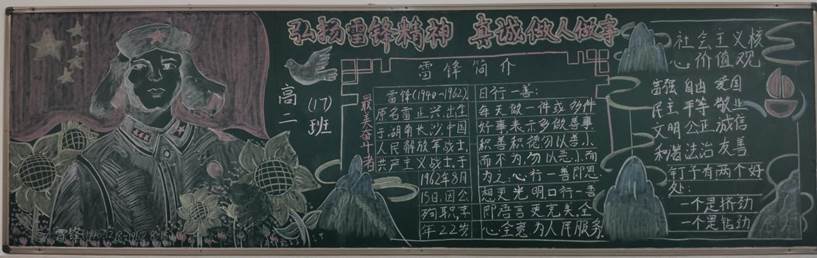 弘扬雷锋精神 真诚做人做事
高二
(17)
班
雷锋简介
最美奋斗者
雷锋(1940-1962),
原名雷正兴,出生
于湖南长沙,中国
人民解放军战士,
共产主义战士,于
1962年8月
15日,因公
殉职,享
年22岁
日行一善:
每天做一件或多件
好事来示多做善事
积善积德勿以善小
而不为,勿以恶小而
为之,心行一善即思
想更光明口行一善
即语言更完美,全
心全意为人民服务
社会主义核
心价值观
富强 自由 爱国
民主 平等 敬业
文明 公正 诚信
和谐 法治 友善
钉子有两个好
处:
一个是挤劲
一个是钻劲
雷锋